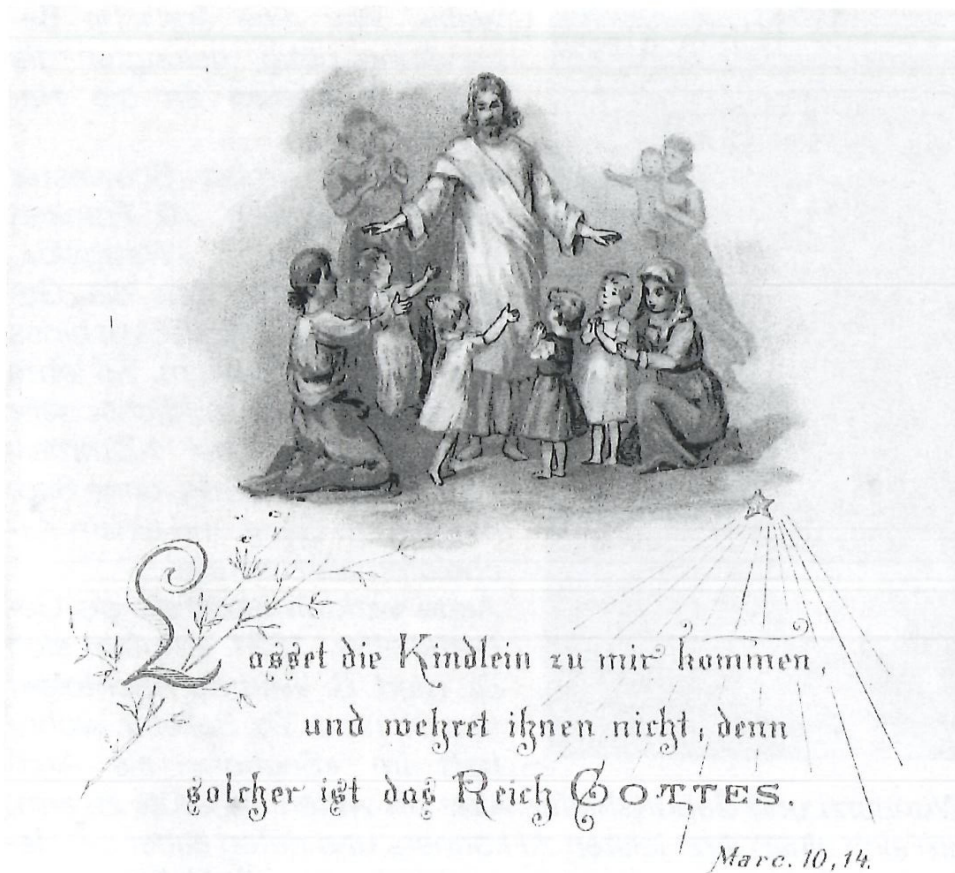 Lasset die Kindlein zu mir kommen,
und wehret ihnen nicht; denn
solcher ist das Reich GOTTES.
Marc. 10,14.